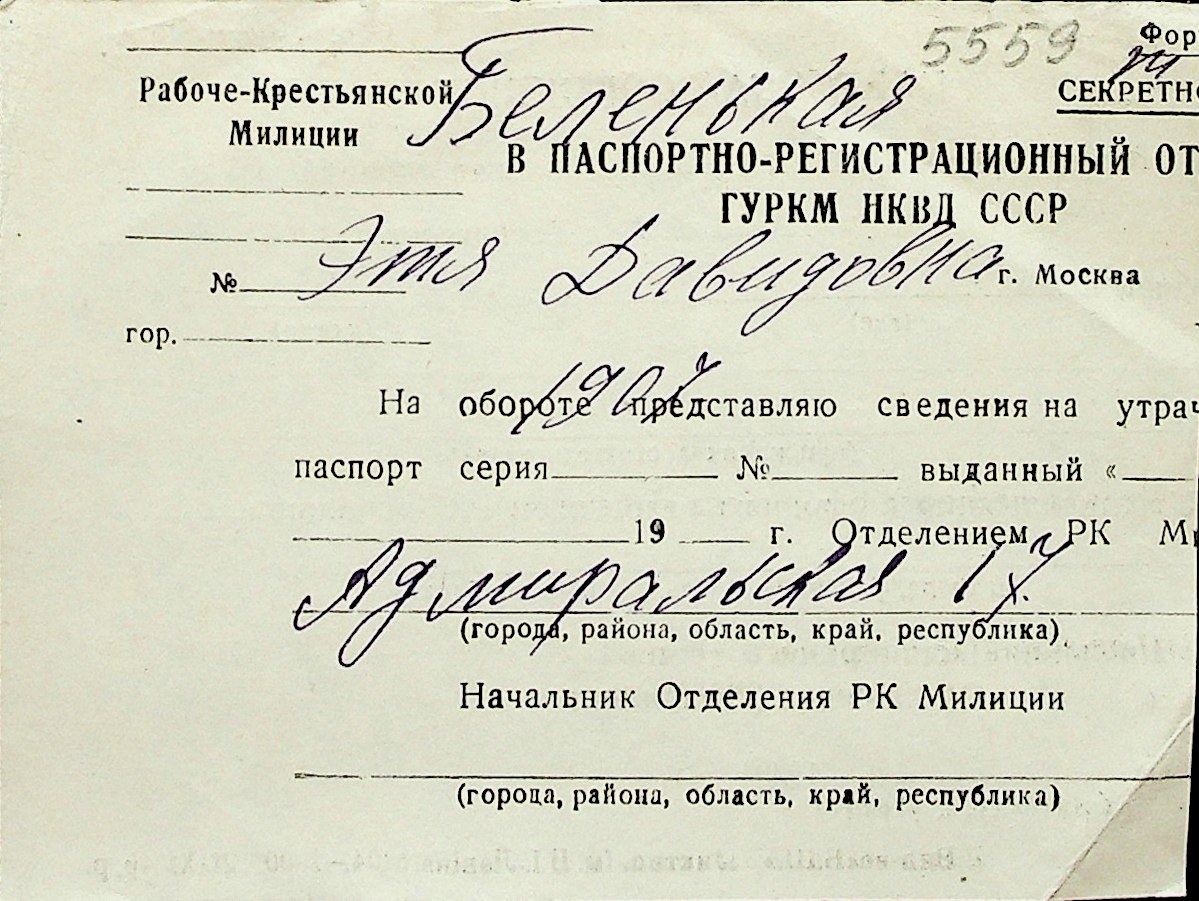 5559
Фор
Рабоче-Крестьянской
Милиции
Беленькая
СЕКРЕТНО
В ПАСПОРТНО-РЕГИСТРАЦИОННЫЙ ОТ
ГУРКМ НКВД СССР
№ Этя Давидовна г. Москва
гор.
1907
На обороте представляю сведения на утрач
паспорт серия № выданный «
19 г. Отделением РК М
Адмиральская 17
(города, района, область, край, республика)
Начальник Отделения РК Милиции
(города, района, область, край, республика)